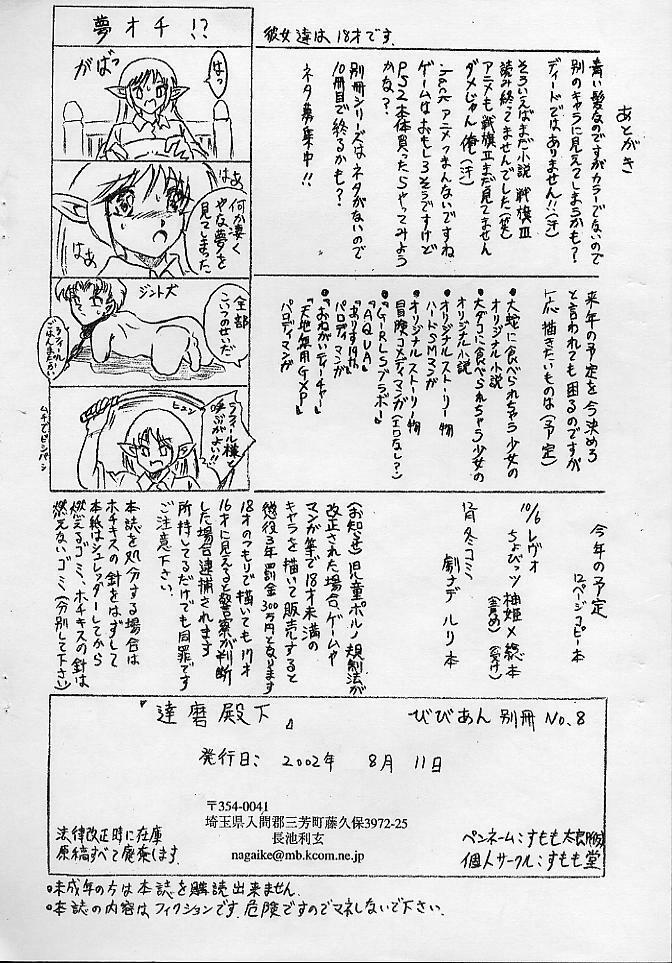 夢オチ !?
はっ
がばっ
はぁ
何か凄く
やな夢を
見てしまった
はぁ
ジント犬
全部
こいつのせいだ
ラフィール
ごはんまだかい
ラフィール様と
呼ぶがよい!!
ヒュン
ムチでビシバシ
彼女達は18才です.
あとがき
青い髪なのですがカラーでないので
別のキャラに見えてしまうかも?
ディードではありません!!(汗)
そういえばまだ小説 戦旗Ⅲ
読み終ってませんでした(笑)
アニメも戦旗Ⅱまだ見てません
ダメじゃん俺(汗)
.hack アニメつまんないですね
ゲームはおもしろそうですけど
PS2本体買ったらやってみよう
かな?
別冊シリーズはネタがないので
10冊目で終るかも?
ネタ募集中!!
来年の予定を今決めろ
と言われても困るのですが
一応描きたいものは(予定)
•大蛇に食べられちゃう少女の
オリジナル小説
•大ダコに食べられちゃう少女の
オリジナル小説
•オリジナルストーリー物
ハードSMマンガ
•オリジナルストーリー物
冒険コメディマンガ(エロなし?)
•『GIRLSブラボー』
『AQUA』
『ありす19th』
パロディマンガ
•『おねがいティーチャー』
『天地無用GXP』
パロディマンガ
今年の予定
12ページコピー本
10/6 レヴォ
ちょびッツ 柚姫×総本
(責め) (受け)
12月冬コミ
劇ナデ ルリ本
(お知らせ) 児童ポルノ規制法が
改正された場合、ゲームや
マンガ等で18才未満の
キャラを描いて販売すると
懲役3年罰金300万円となります
18才のつもりで描いても17才
16才に見えると警察が判断
した場合逮捕されます
所持してるだけでも同罪です
ご注意下さい.
本誌を処分する場合は
ホチキスの針をはずして
本紙はシュレッダーしてから
燃えるゴミ、ホチキスの針は
燃えないゴミ(分別して下さい)
『達磨殿下』
びびあん 別冊 No.8
発行日: 2002年 8月 11日
〒354-0041
埼玉県入間郡三芳町藤久保3972-25
長池利玄
nagaike@mb.kcom.ne.jp
法律改正時に在庫
原稿すべて廃棄します.
ペンネーム:すもも太郎(仮)
個人サークル:すもも堂
•未成年の方は本誌を購読出来ません.
•本誌の内容はフィクションです.危険ですのでマネしないで下さい.